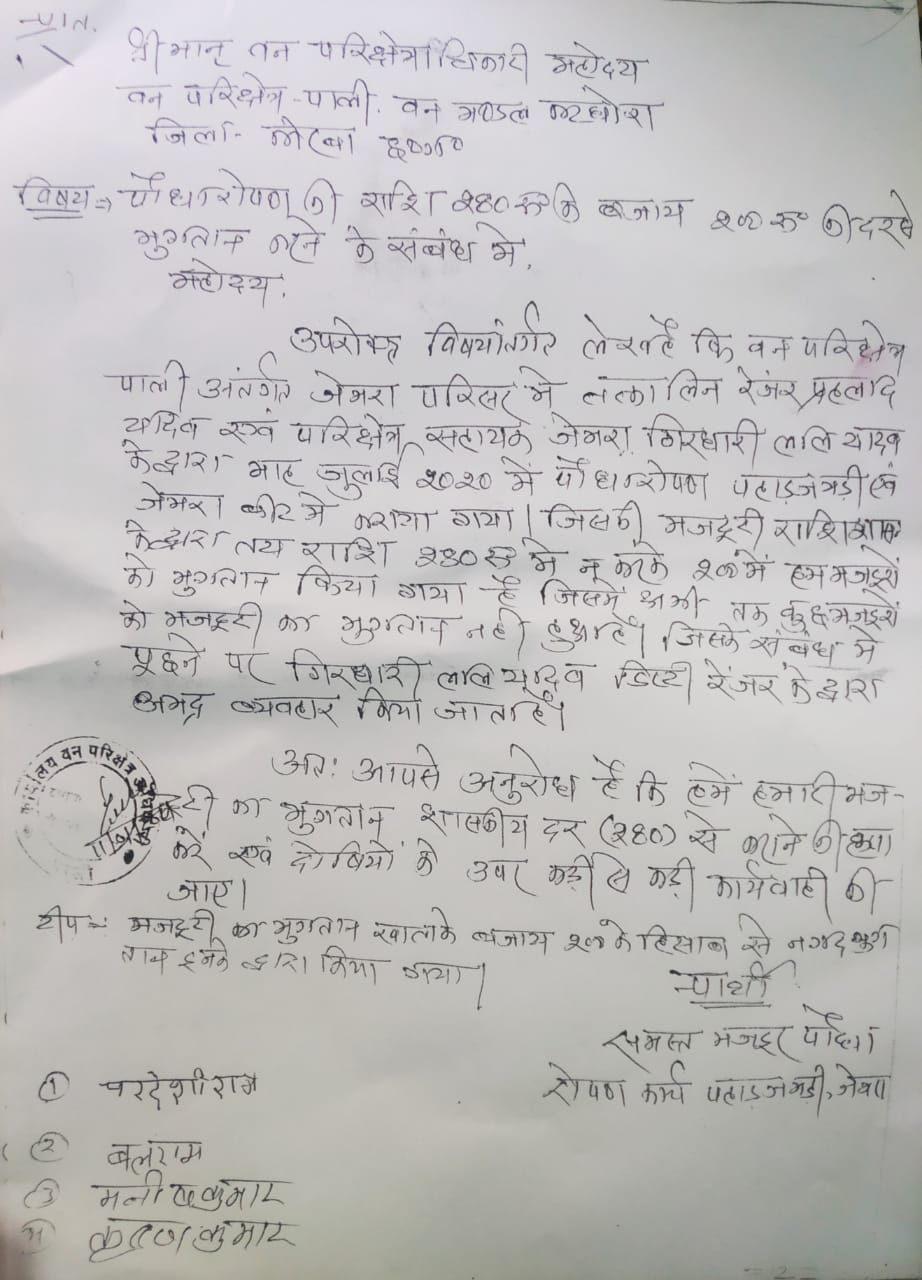 प्रति,
श्रीमान् वन परिक्षेत्राधिकारी महोदय
वन परिक्षेत्र - पाली. वन मण्डल कटघोरा
जिला - कोरबा छ०ग०
विषय => पौधारोपण की राशि २८० रू के बजाय २०० रू की दर से
भुगतान करने के संबंध में.
महोदय.
उपरोक्त विषयांतर्गत लेख है कि वन परिक्षेत्र
पाली अंतर्गत जेमरा परिसर में तत्कालिन रेंजर प्रहलाद
यादव एवं परिक्षेत्र सहायक जेमरा गिरधारी लाल यादव
के द्वारा माह जुलाई २०२० में पौधारोपण पहाड़जमड़ी एवं
जेमरा बीट में कराया गया। जिसकी मजदूरी राशि शासन
के द्वारा तय राशि २८० रू में न करके २०० में हम मजदूरों
को भुगतान किया गया है जिसमें अभी तक कुछ मजदूरों
को मजदूरी का भुगतान नहीं हुआ है। जिसके संबंध में
पूछने पर गिरधारी लाल यादव डिप्टी रेंजर के द्वारा
अभद्र व्यवहार किया जाता है।
अतः आपसे अनुरोध है कि हमें हमारी मज-
दूरी का भुगतान शासकीय दर (२८०) से कराने की कृपा
करें एवं दोषियों के उपर कड़ी से कड़ी कार्यवाही की
जाए।
टीप :- मजदूरी का भुगतान खाता के बजाय २०० के हिसाब से नगद भुग
तान इनके द्वारा किया गया।
प्रार्थी
समस्त मजदूर पौधा
रोपण कार्य पहाड़जमड़ी, जेमरा
① परदेशीराम
② बलराम
③ मनीष कुमार
करण कुमार
कार्यालय वन परिक्षेत्र